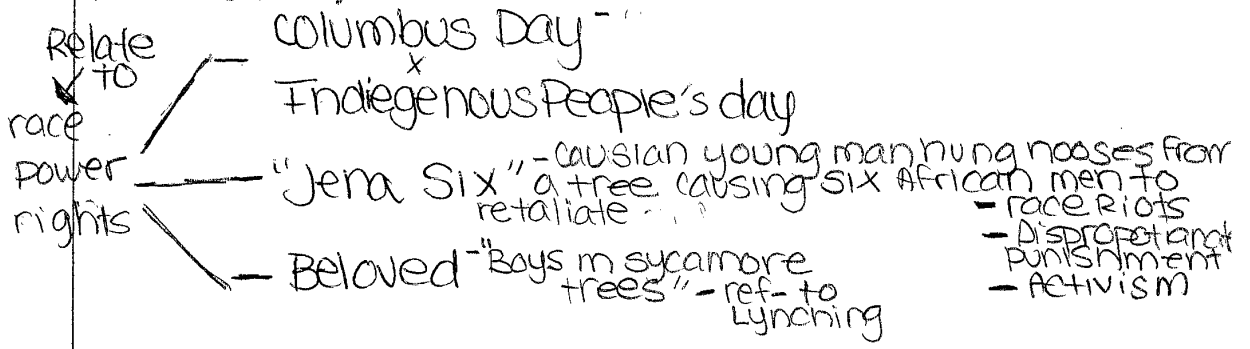 Relate
to
race
power
rights
Columbus Day -
x
Indiegenous People's day
"Jena Six" - Causian young man hung nooses from
a tree causing six African men to
retaliate
- race Riots
- Dispropotanat
punishment
- Activism
Beloved - "Boys in sycamore
trees" - ref- to
Lynching